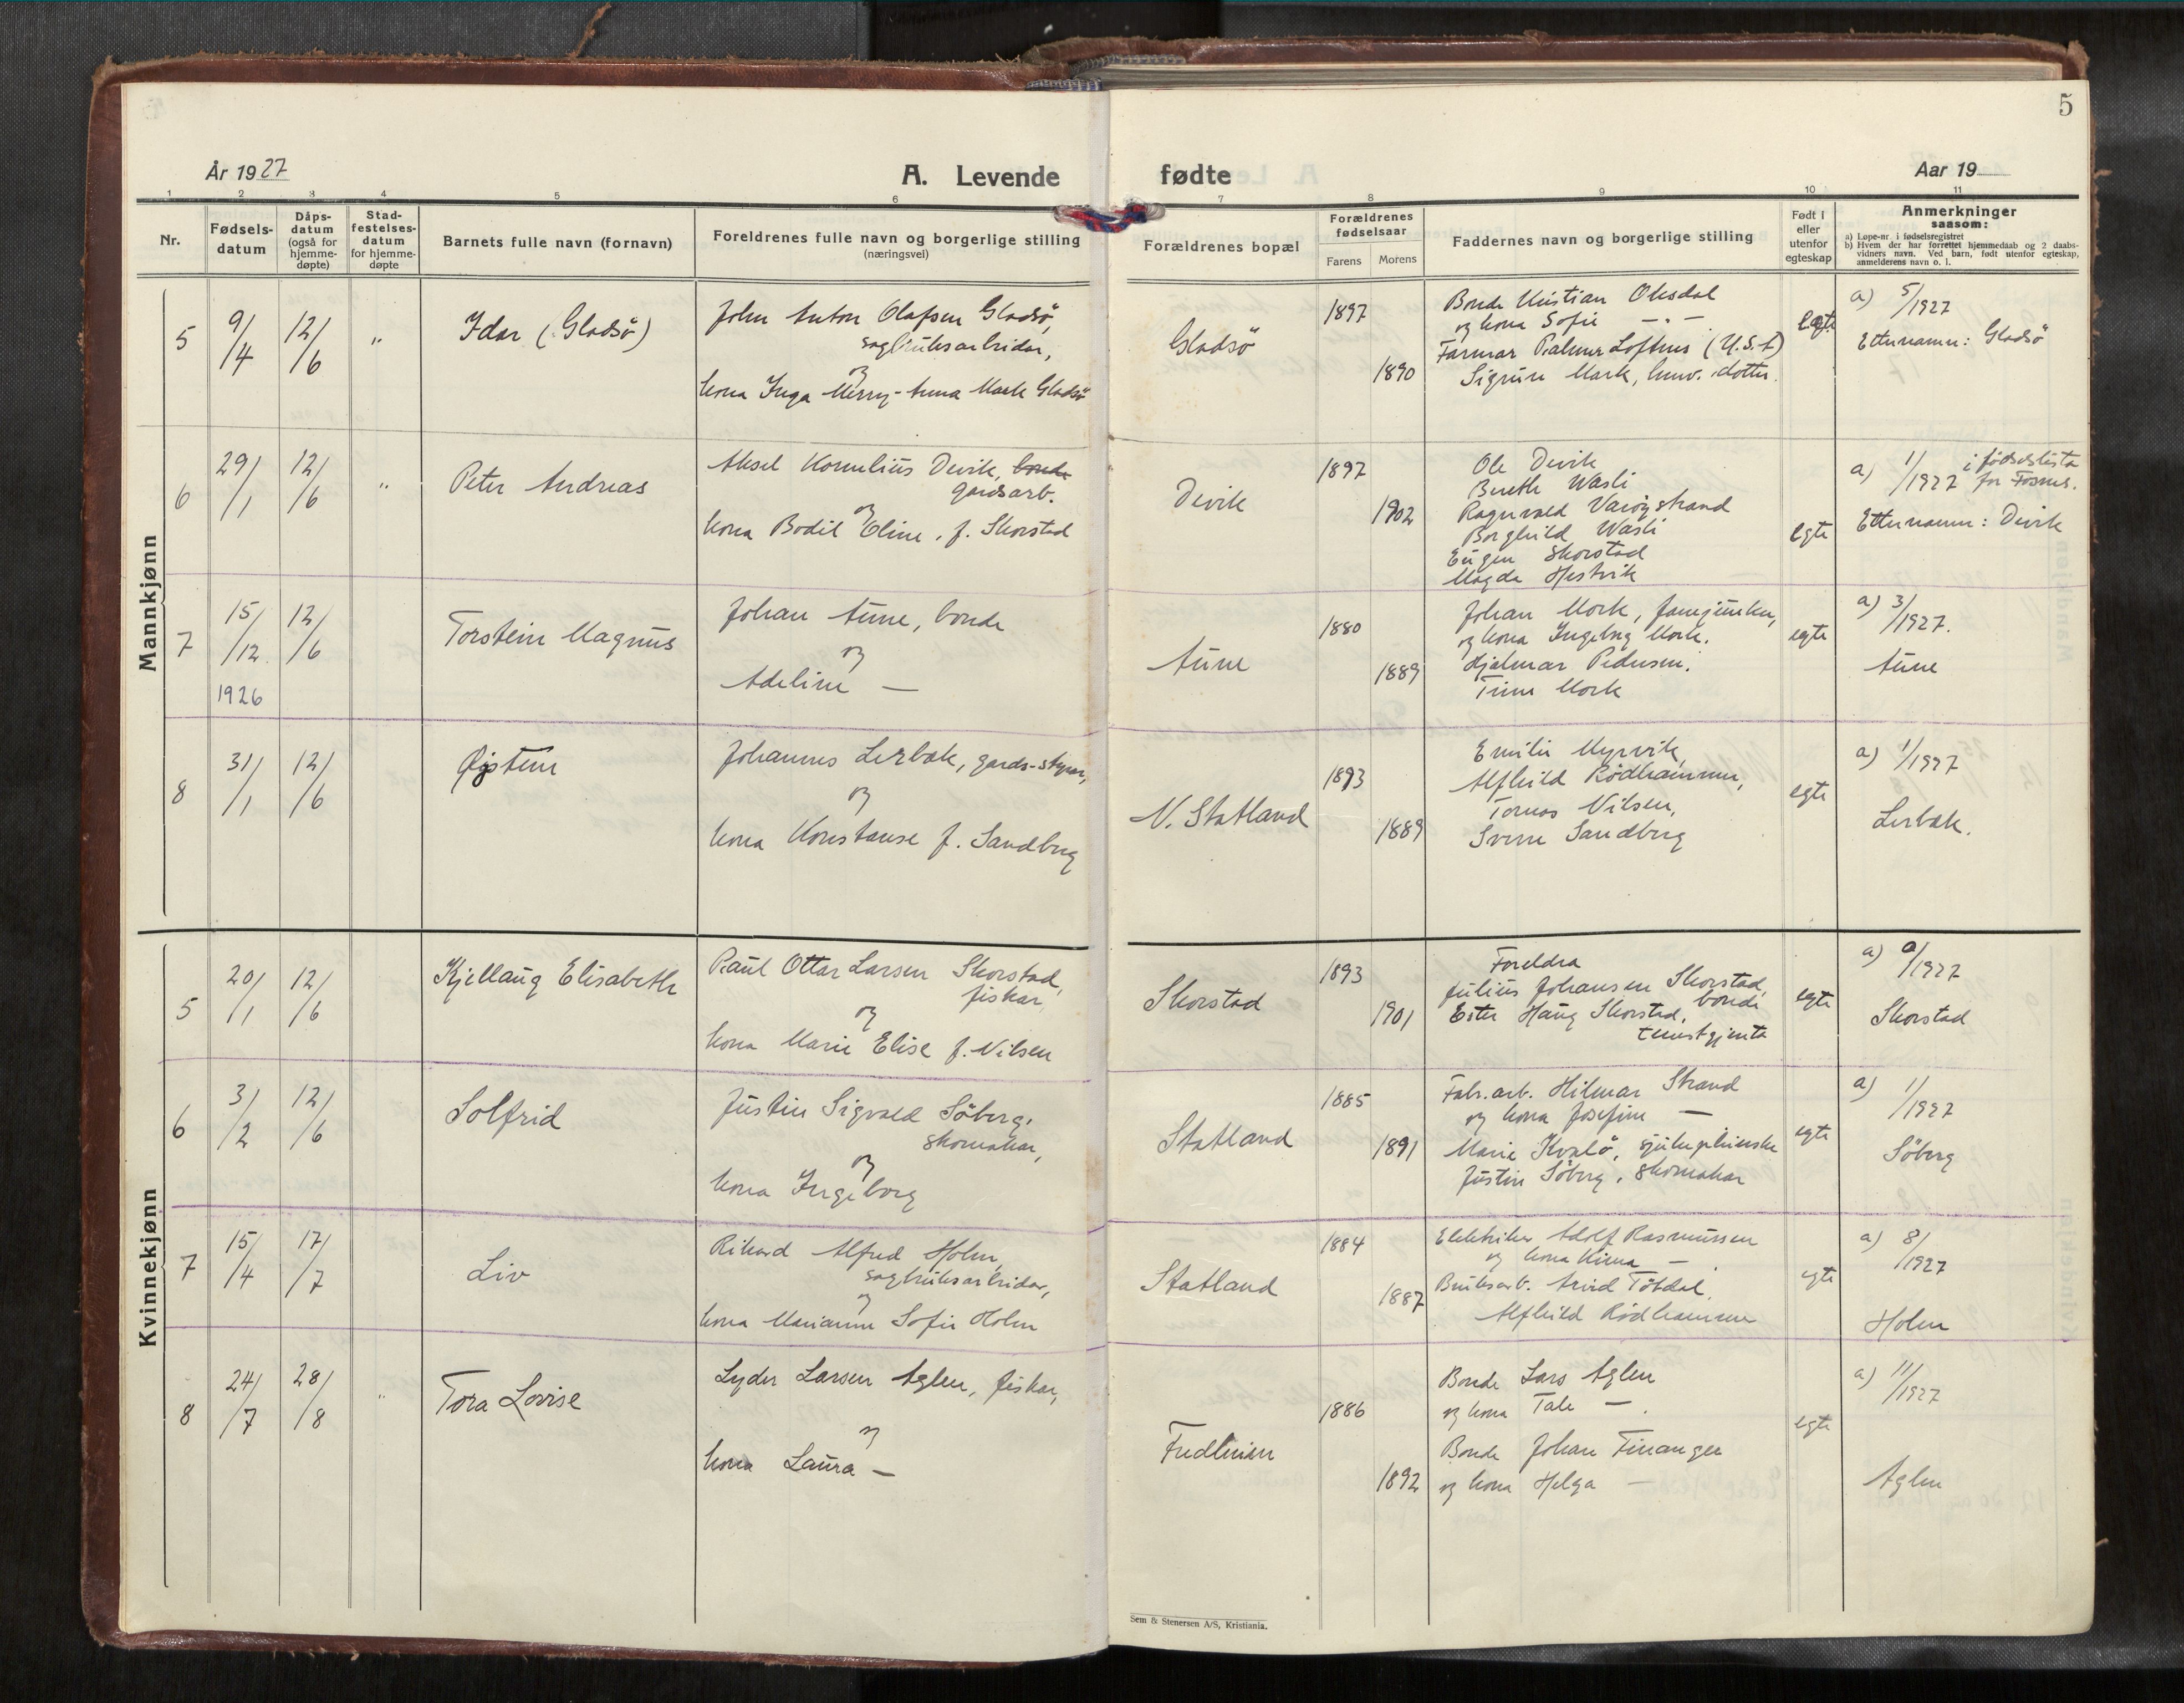 5
År 1927
A. Levende
fødte
Aar 19
1 2 3 4 5 6 7 8 9 10 11
Nr.
Fødsels-
datum
Dåps-
datum
(også for
hjemme-
døpte)
Stad-
festelses-
datum
for hjemme-
døpte
Barnets fulle navn (fornavn)
Foreldrenes fulle navn og borgerlige stilling
(næringsvei)
Forældrenes bopæl
Forældrenes
fødselsaar
Farens Morens
Faddernes navn og borgerlige stilling
Født i
eller
utenfor
egteskap
Anmerkninger
saasom:
a) Løpe-nr. i fødselsregistret
b) Hvem der har forrettet hjemmedaab og 2 daabs-
vidners navn. Ved barn, født utenfor egteskap,
anmelderens navn o. l.
Mannkjønn
5
9/4
12/6
"
Idar (Gladsö)
John Anton Olafsen Gladsö,
sagbruksarbeidar,
og
kona Inga Merry-Anna Mark Gladsö
Gladsö
1897
1890
Bonde Kristian Olesdal
og kona Sofie — " —
Farmar Palmer Loftnes (U.S.A)
Sigrun Mark, dotter.
egte
a) 5/1927
Etternamn: Gladsö
6
29/1
12/6
"
Peter Andreas
Aksel Kornelius Devik, bonde
gardsarb.
og
kona Bodil Eline, f. Skorstad
Devik
1897
1902
Ole Devik
Bereth Wasli
Ragnvald Varöystrand
Borghild Wasli
Eugen Skorstad
Magda Hestvik
egte
a) 1/1927 i fødselslista
for Fosnes.
Etternamn: Devik
7
15/12
1926
12/6
Torstein Magnus
Johan Aune, bonde
og
Adeline —
Aune
1880
1889
Johan Mork, fanejunker,
og kona Ingeborg Mork.
Hjalmar Pedersen.
Trine Mork
egte
a) 3/1927.
Aune
8
31/1
12/6
Øystein
Johannes Lerbak, gards-styrar,
og
kona Konstanse f. Sandberg
N. Statland
1893
1889
Emilie Myrvik,
Alfhild Rödhammer,
Tomas Nilsen,
Sverre Sandberg
egte
a) 1/1927
Lerbak.
Kvinnekjønn
5
20/1
12/6
Kjellaug Elisabeth
Paul Ottar Larsen Skorstad,
fiskar,
og
kona Marie Elise f. Nilsen
Skorstad
1893
1901
Foreldra
Julius Johansen Skorstad,
bonde
Ester Haug Skorstad,
tenestgjenta
egte
a) 9/1927
Skorstad
6
3/2
12/6
Solfrid
Justin Sigvald Söberg,
skomakar,
og
kona Ingeborg
Statland
1885
1891
Fabr.arb. Hilmar Strand
og kona Josefine —
Marie Kvalö, sjukepleierske
Justin Söberg, skomakar
egte
a) 1/1927
Söberg
7
15/4
17/7
Liv
Rikard Alfred Holm,
sagbruksarbeidar,
og
kona Marianne Sofie Holm
Statland
1884
1887
Elektriker Adolf Rasmussen
og kona —
Bruksarb. Arvid Tötdal,
Alfhild Rödhammer
egte
a) 8/1927
Holm
8
24/7
28/8
"
Tora Lovise
Lyder Larsen Aglen, fiskar,
og
kona Laura —
Fredheim
1886
1892
Bonde Lars Aglen
og kona Tale — .
Bonde Johan Finanger
og kona Helga —
egte
a) 11/1927
Aglen
Sem & Stenersen A/S, Kristiania.